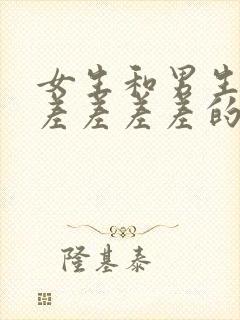 女生和男生
差差差差的
隆基泰